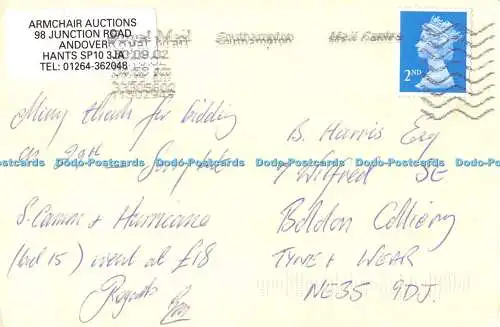 ARMCHAIR AUCTIONS
98 JUNCTION ROAD
ANDOVER
HANTS SP10 3JA
TEL: 01264-362048
Royal Mail
Southampton
Mail Centre
2ND
Many thanks for bidding
on 20th
S. Camm & Hurricane
(lot 15) went at £18
Regards
B. Harris Esq
7 Wilfred St
Boldon Colliery
TYNE & WEAR
NE35 9DJ.
Dodo-Postcards Dodo-Postcards Dodo-Postcards Dodo-Postcards Dodo-Postcards